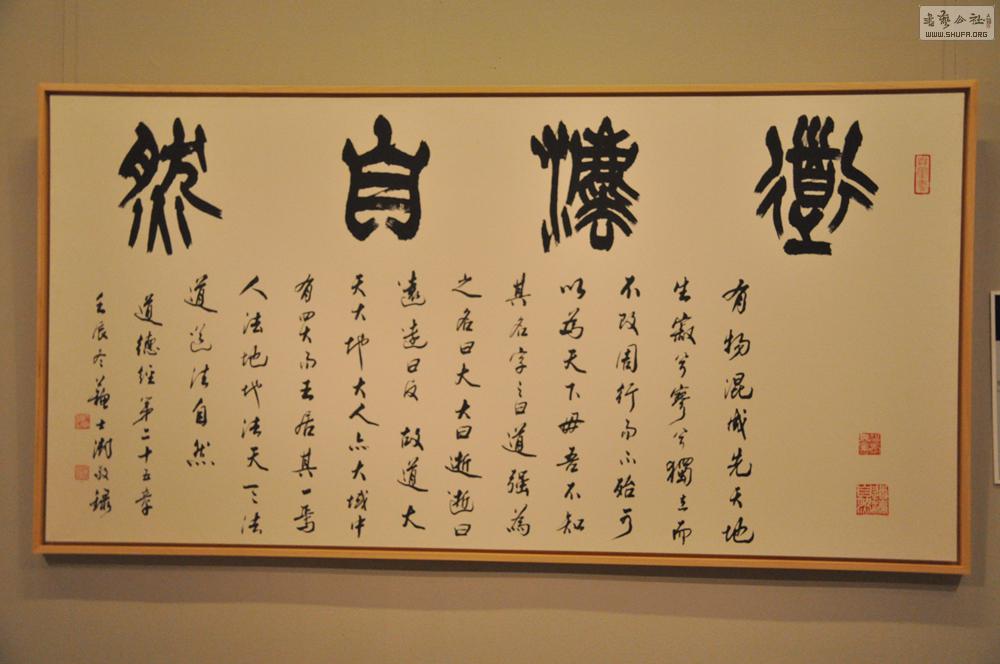 道法自然
有物混成先天地
生寂兮寥兮獨立而
不改周行而不殆可
以為天下毋吾不知
其名字之曰道强為
之名曰大大曰逝逝曰
遠遠曰反故道大
天大地大人亦大域中
有四大而王居其一焉
人法地地法天天法
道道法自然
道德經第二十五章
壬辰冬蘇士澍敬錄
書藝公社
WWW.SHUFA.ORG